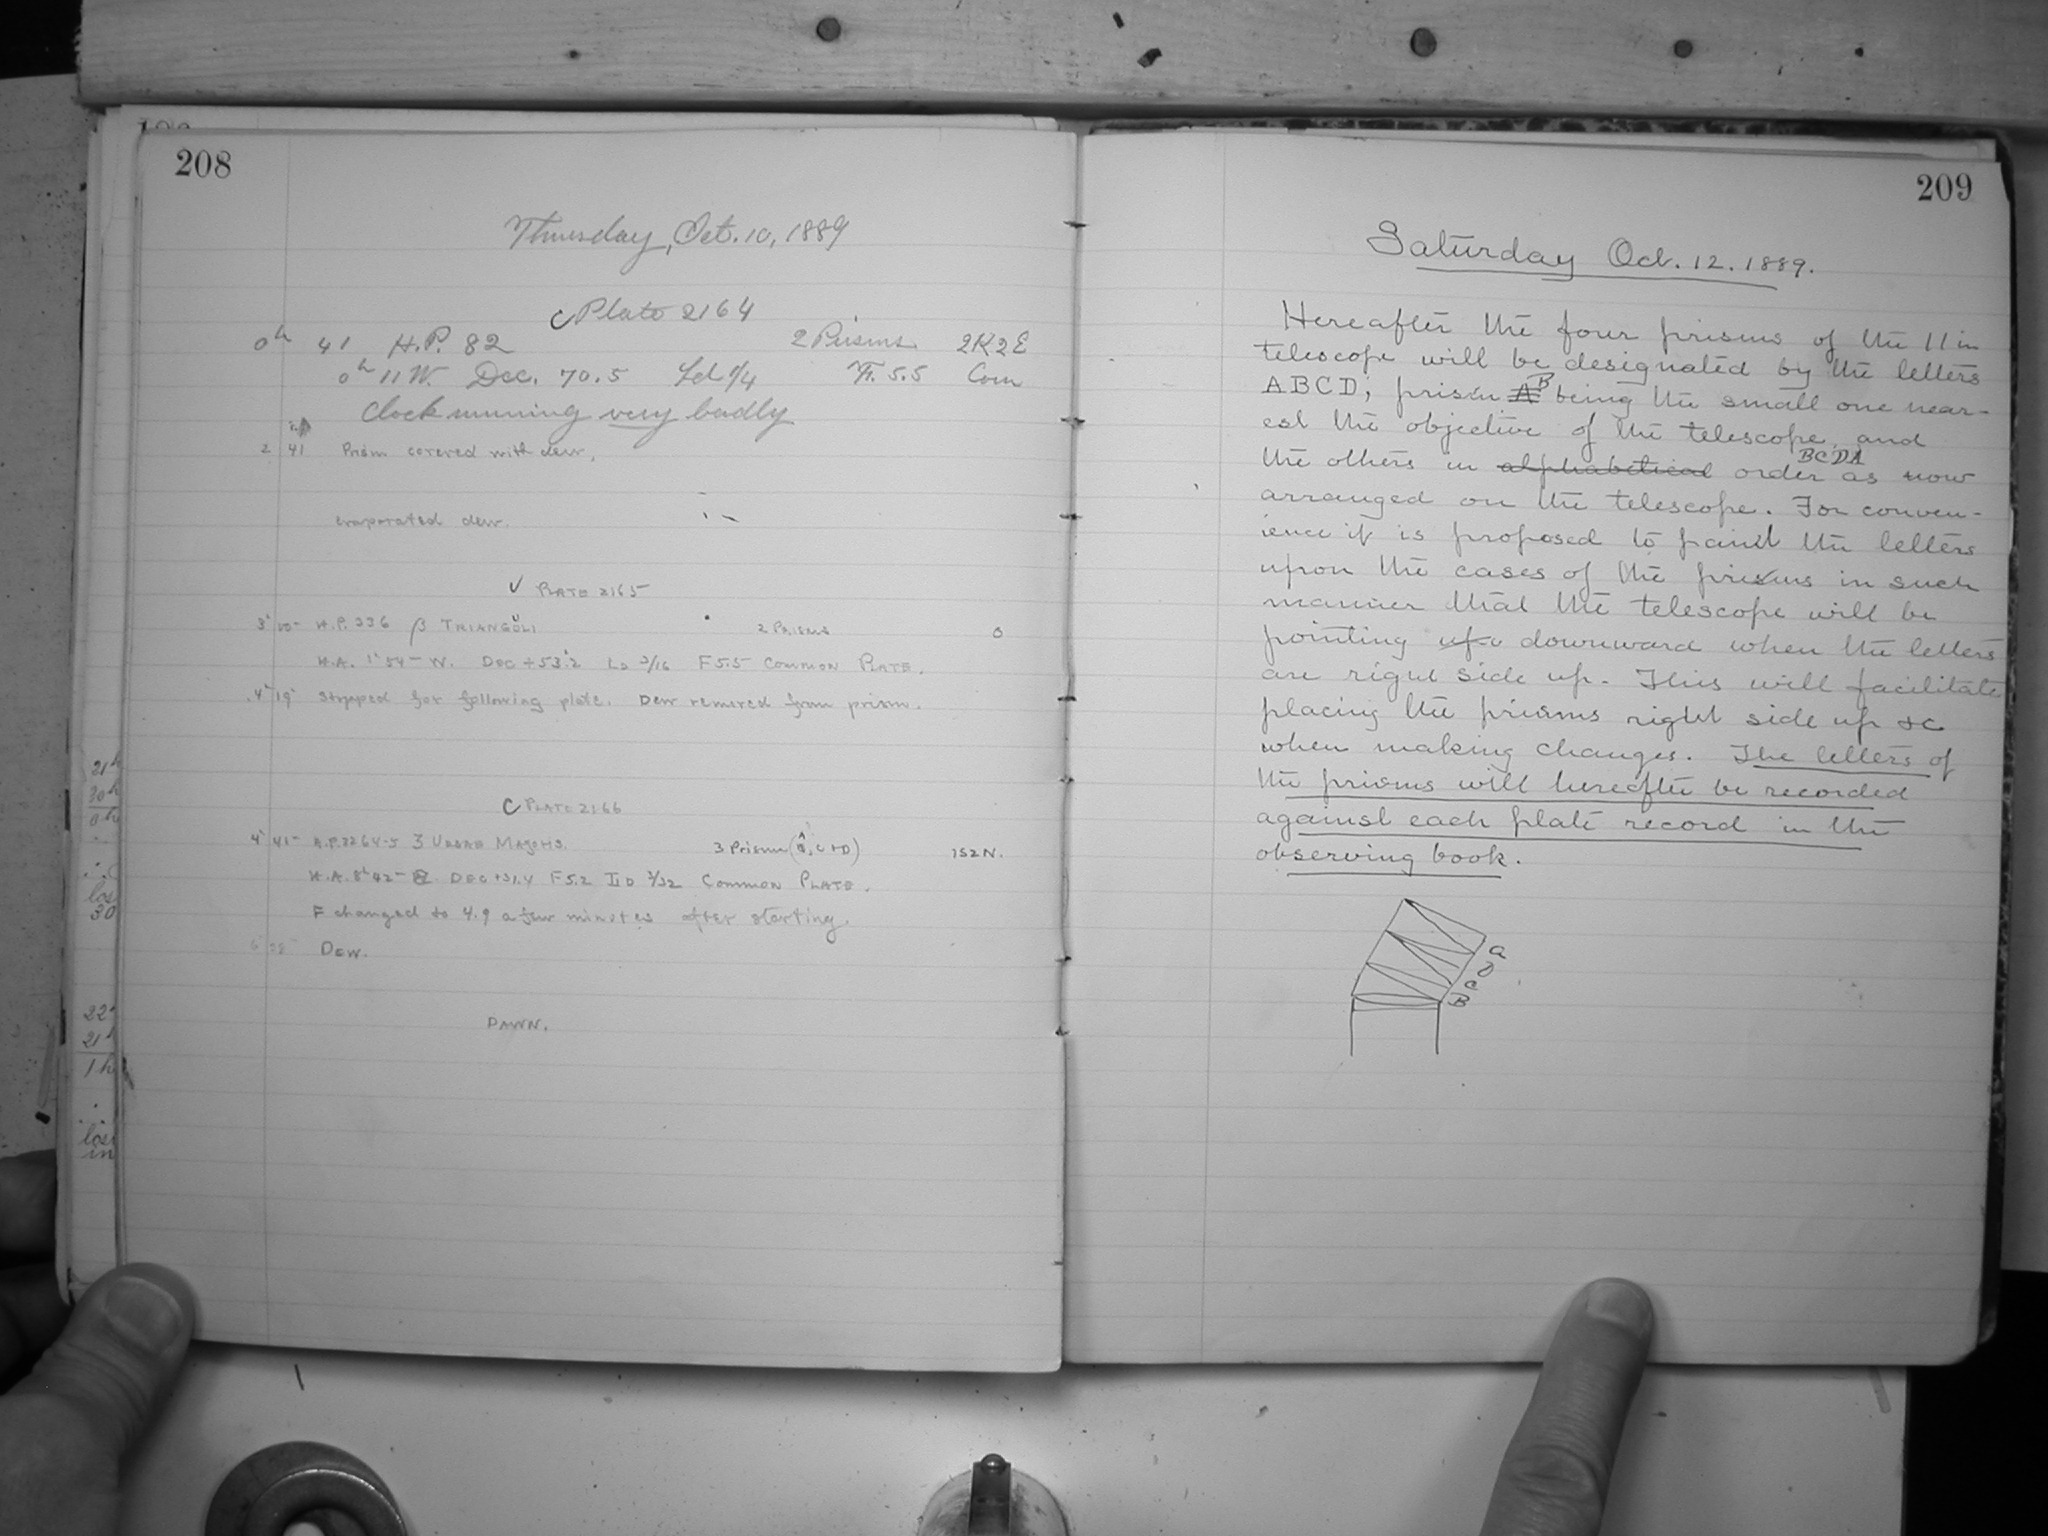 208
Thursday, Oct. 10, 1889
Plate 2164
0h 41 H.P. 82 2 Prisms 2K2E
0h 11 W. Dec. 70.5 Ld 1/4 F. 5.5 Com
Clock running very badly
2 41 Prism covered with dew.
evaporated dew.
✓ PLATE 2165
H.P. 336 β TRIANGULI 2 PRISMS 0
H.A. 1h 54m W. DEC + 53.2 LD 3/16 F 5.5 COMMON PLATE.
4h 19m Stopped for following plate. Dew removed from prism.
PLATE 2166
4h 41m URSAE MAJORIS. 3 Prisms 1S2N.
H.A. 8h 42m DEC +31.4 F 5.2 COMMON PLATE.
F changed to 4.9 a few minutes after starting.
DEW.
DAWN.
21h
0h
los
30
21h
1h
los
in
209
Saturday Oct. 12. 1889.
Hereafter the four prisms of the 11 in
telescope will be designated by the letters
ABCD; prism A B being the small one near-
est the objective of the telescope, and
the others in alphabetical order BCDA as now
arranged on the telescope. For conven-
ience it is proposed to paint the letters
upon the cases of the prisms in such
manner that the telescope will be
pointing up downward when the letters
are right side up. This will facilitate
placing the prisms right side up &c
when making changes. The letters of
the prisms will hereafter be recorded
against each plate record in the
observing book.
a
D
C
B